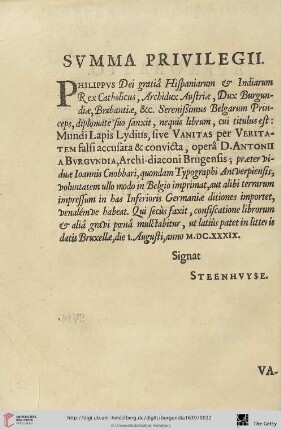 SVMMA PRIVILEGII.
PHILIPPVS Dei gratiâ Hispaniarum & Indiarum
Rex Catholicus, Archidux Austriæ, Dux Burgun-
diæ, Brabantiæ, &c. Serenissimus Belgarum Prin-
ceps, diplomate suo sanxit, nequis librum, cui titulus est:
Mundi Lapis Lydius, sive VANITAS per VERITA-
TEM falsi accusata & convicta, operâ D. ANTONII
A BVRGVNDIA, Archi-diaconi Brugensis; præter vi-
duæ Ioannis Cnobbari, quondam Typographi Antverpiensis,
voluntatem ullo modo in Belgio imprimat, aut alibi terrarum
impressum in has Inferioris Germaniæ ditiones importet,
venalémve habeat. Qui secùs faxit, confiscatione librorum
& aliâ gravi pœnâ mulctabitur, ut latiùs patet in litteris
datis Bruxellæ, die 1. Augusti, anno M.DC.XXXIX.
Signat
STEENHVYSE.
VA-
UNIVERSITÄTS-
BIBLIOTHEK
HEIDELBERG
© Universitätsbibliothek Heidelberg
The Getty